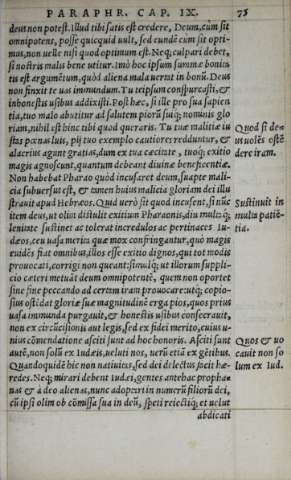 PARAPHR. CAP. IX. 75
deus non potest. Illud tibi satis est credere, Deum, cùm sit
omnipotens, posse quicquid uult, sed eundē cùm sit opti-
mus, non uelle nisi quod optimum est. Neq; culpari debet,
si nostris malis bene utitur. Imò hoc ipsum summæ bonita
tis est argumētum, quòd aliena mala uernit in bonū. Deus
non finxit te uas immundum. Tu teipsum conspurcasti, &
inhonestis usibus addixisti. Post hæc, si ille pro sua sapien
tia, tuo malo abutitur ad salutem piorū suāq; nominis glo
riam, nihil est hinc tibi quod queraris. Tu tuæ malitiæ iu
stas pœnas luis, pij tuo exemplo cautiores redduntur, &
alacrius agunt gratias, dum ex tua cæcitate, tuoq; exitio
magis agnoscunt, quantum debeant diuinæ beneficentiæ.
Non habebat Pharao quòd incusaret deum, suapte mali-
cia subuersus est, & tamen huius malicia gloriam dei illu
strauit apud Hebræos. Quid uerò sit quod incusent, si nūc
item deus, ut olim distulit exitium Pharaonis, diu multūq;
lenitate sustinet ac tolerat incredulos ac pertinaces Iu-
dæos, ceu uasa merita quæ mox confringantur, quò magis
euidēs fiat omnibus, illos esse exitio dignos, qui tot modis
prouocati, corrigi non queant: simulq; ut illorum suppli-
cio cæteri metuāt deum omnipotentē, quem non oportet
sine fine peccando ad certam iram prouocare: utq; copio-
sius ostēdat gloriæ suæ magnitudinē erga pios, quos prius
uasa immunda purgauit, & honestis usibus consecrauit,
non ex circūcisionis aut legis, sed ex fidei merito, cuius u-
nius cōmendatione asciti sunt ad hoc honoris. Asciti sunt
autē, non solū ex Iudæis, ueluti nos, uerū etiā ex gētibus.
Quandoquidē hic non natiuitas, sed dei delectus facit hæ-
redes. Neq; mirari debent Iudæi, gentes antehac propha-
nas & à deo alienas, nunc adoptari in numerū filiorū dei,
cū ipsi olim ob cōmissa sua in deū, spreti reiectiq; et uelut
abdicati
Quod si de-
us uolēs ostē
dere iram.
Sustinuit in
multa patiē-
tia.
Quos & uo
cauit non so
lum ex Iud.